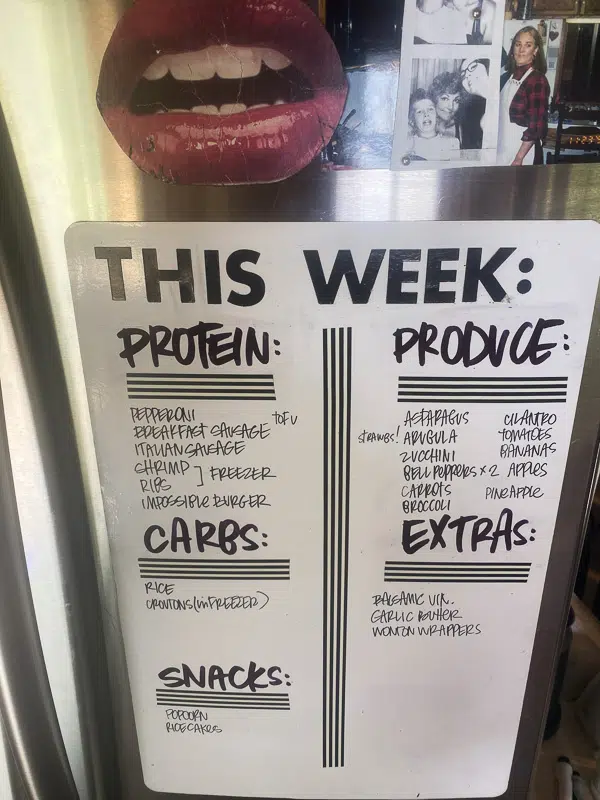 THIS WEEK:
PROTEIN:
PEPPERONI
TOFU
BREAKFAST SAUSAGE
ITALIAN SAUSAGE
SHRIMP ] FREEZER
RIBS
IMPOSSIBLE BURGER
CARBS:
RICE
CROUTONS (in FREEZER)
SNACKS:
POPCORN
RICE CAKES
PRODUCE:
ASPARAGUS
STRAWBS! ARUGULA
ZUCCHINI
BELL PEPPERS x 2
CARROTS
BROCCOLI
CILANTRO
TOMATOES
BANANAS
APPLES
PINEAPPLE
EXTRAS:
BALSAMIC VIN.
GARLIC BUTTER
WONTON WRAPPERS